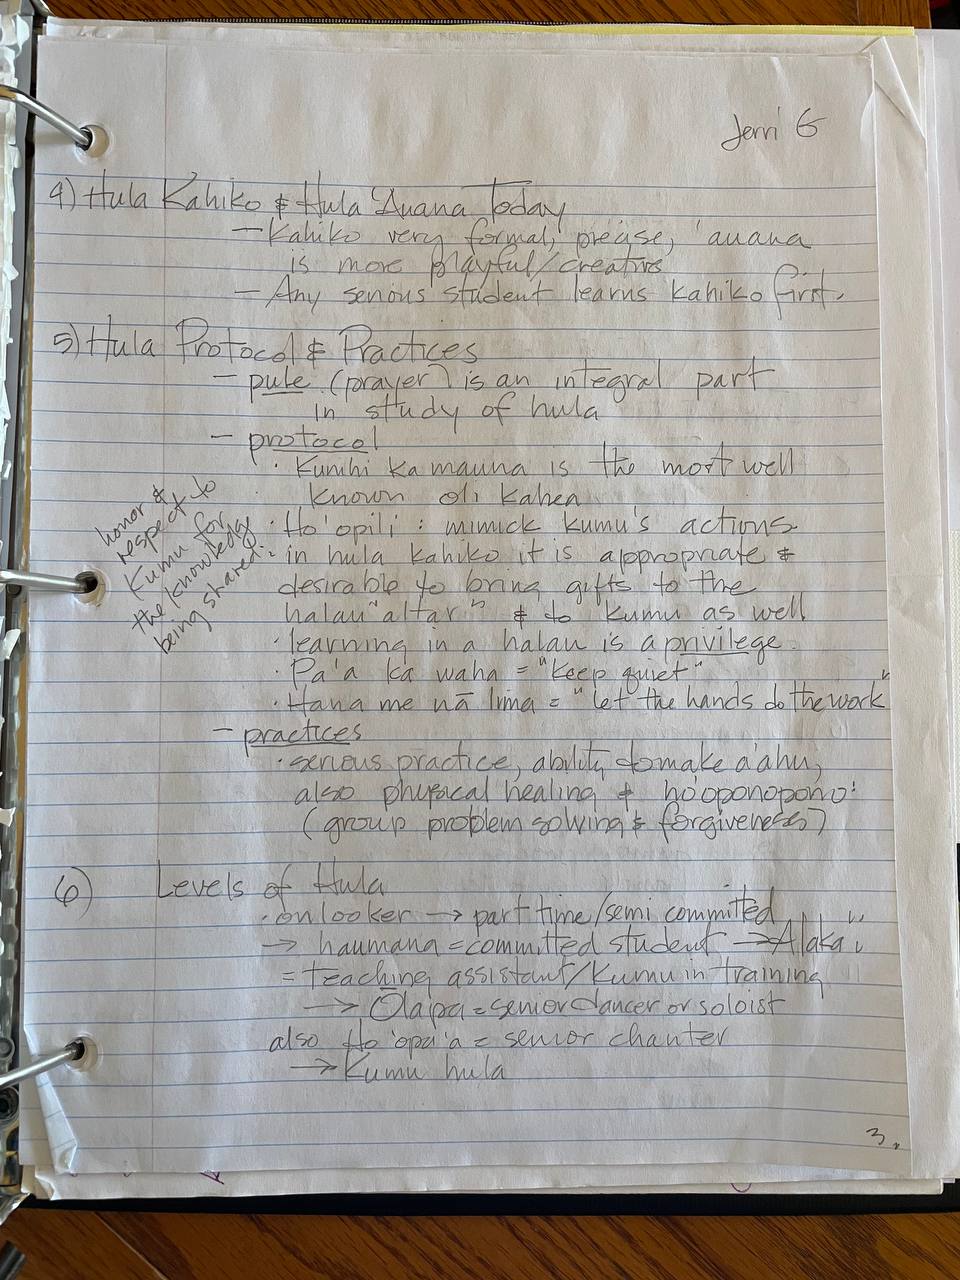 Jerri G
4) Hula Kahiko & Hula 'Auana Today
— Kahiko very formal, precise, 'auana
is more playful/creative
— Any serious student learns kahiko first.
5) Hula Protocol & Practices
— pule (prayer) is an integral part
in study of hula
— protocol
· Kunihi ka mauna is the most well
known oli kahea
· Ho'opili : mimick kumu's actions.
· in hula kahiko it is appropriate &
desirable to bring gifts to the
halau "altar" & to kumu as well
honor &
respect to
Kumu for
the knowledge
being shared.
· learning in a halau is a privilege.
· Pa'a ka waha = "keep quiet"
· Hana me nā lima = "let the hands do the work"
— practices
· serious practice, ability to make a'ahu,
also physical healing & ho'oponopono'
(group problem solving & forgiveness)
6) Levels of Hula
· onlooker → part time/semi commited
→ haumana = committed student → Alaka'i
= teaching assistant/kumu in training
→ Ōlapa = senior dancer or soloist
also Ho'opa'a = senior chanter
→ Kumu hula
3.